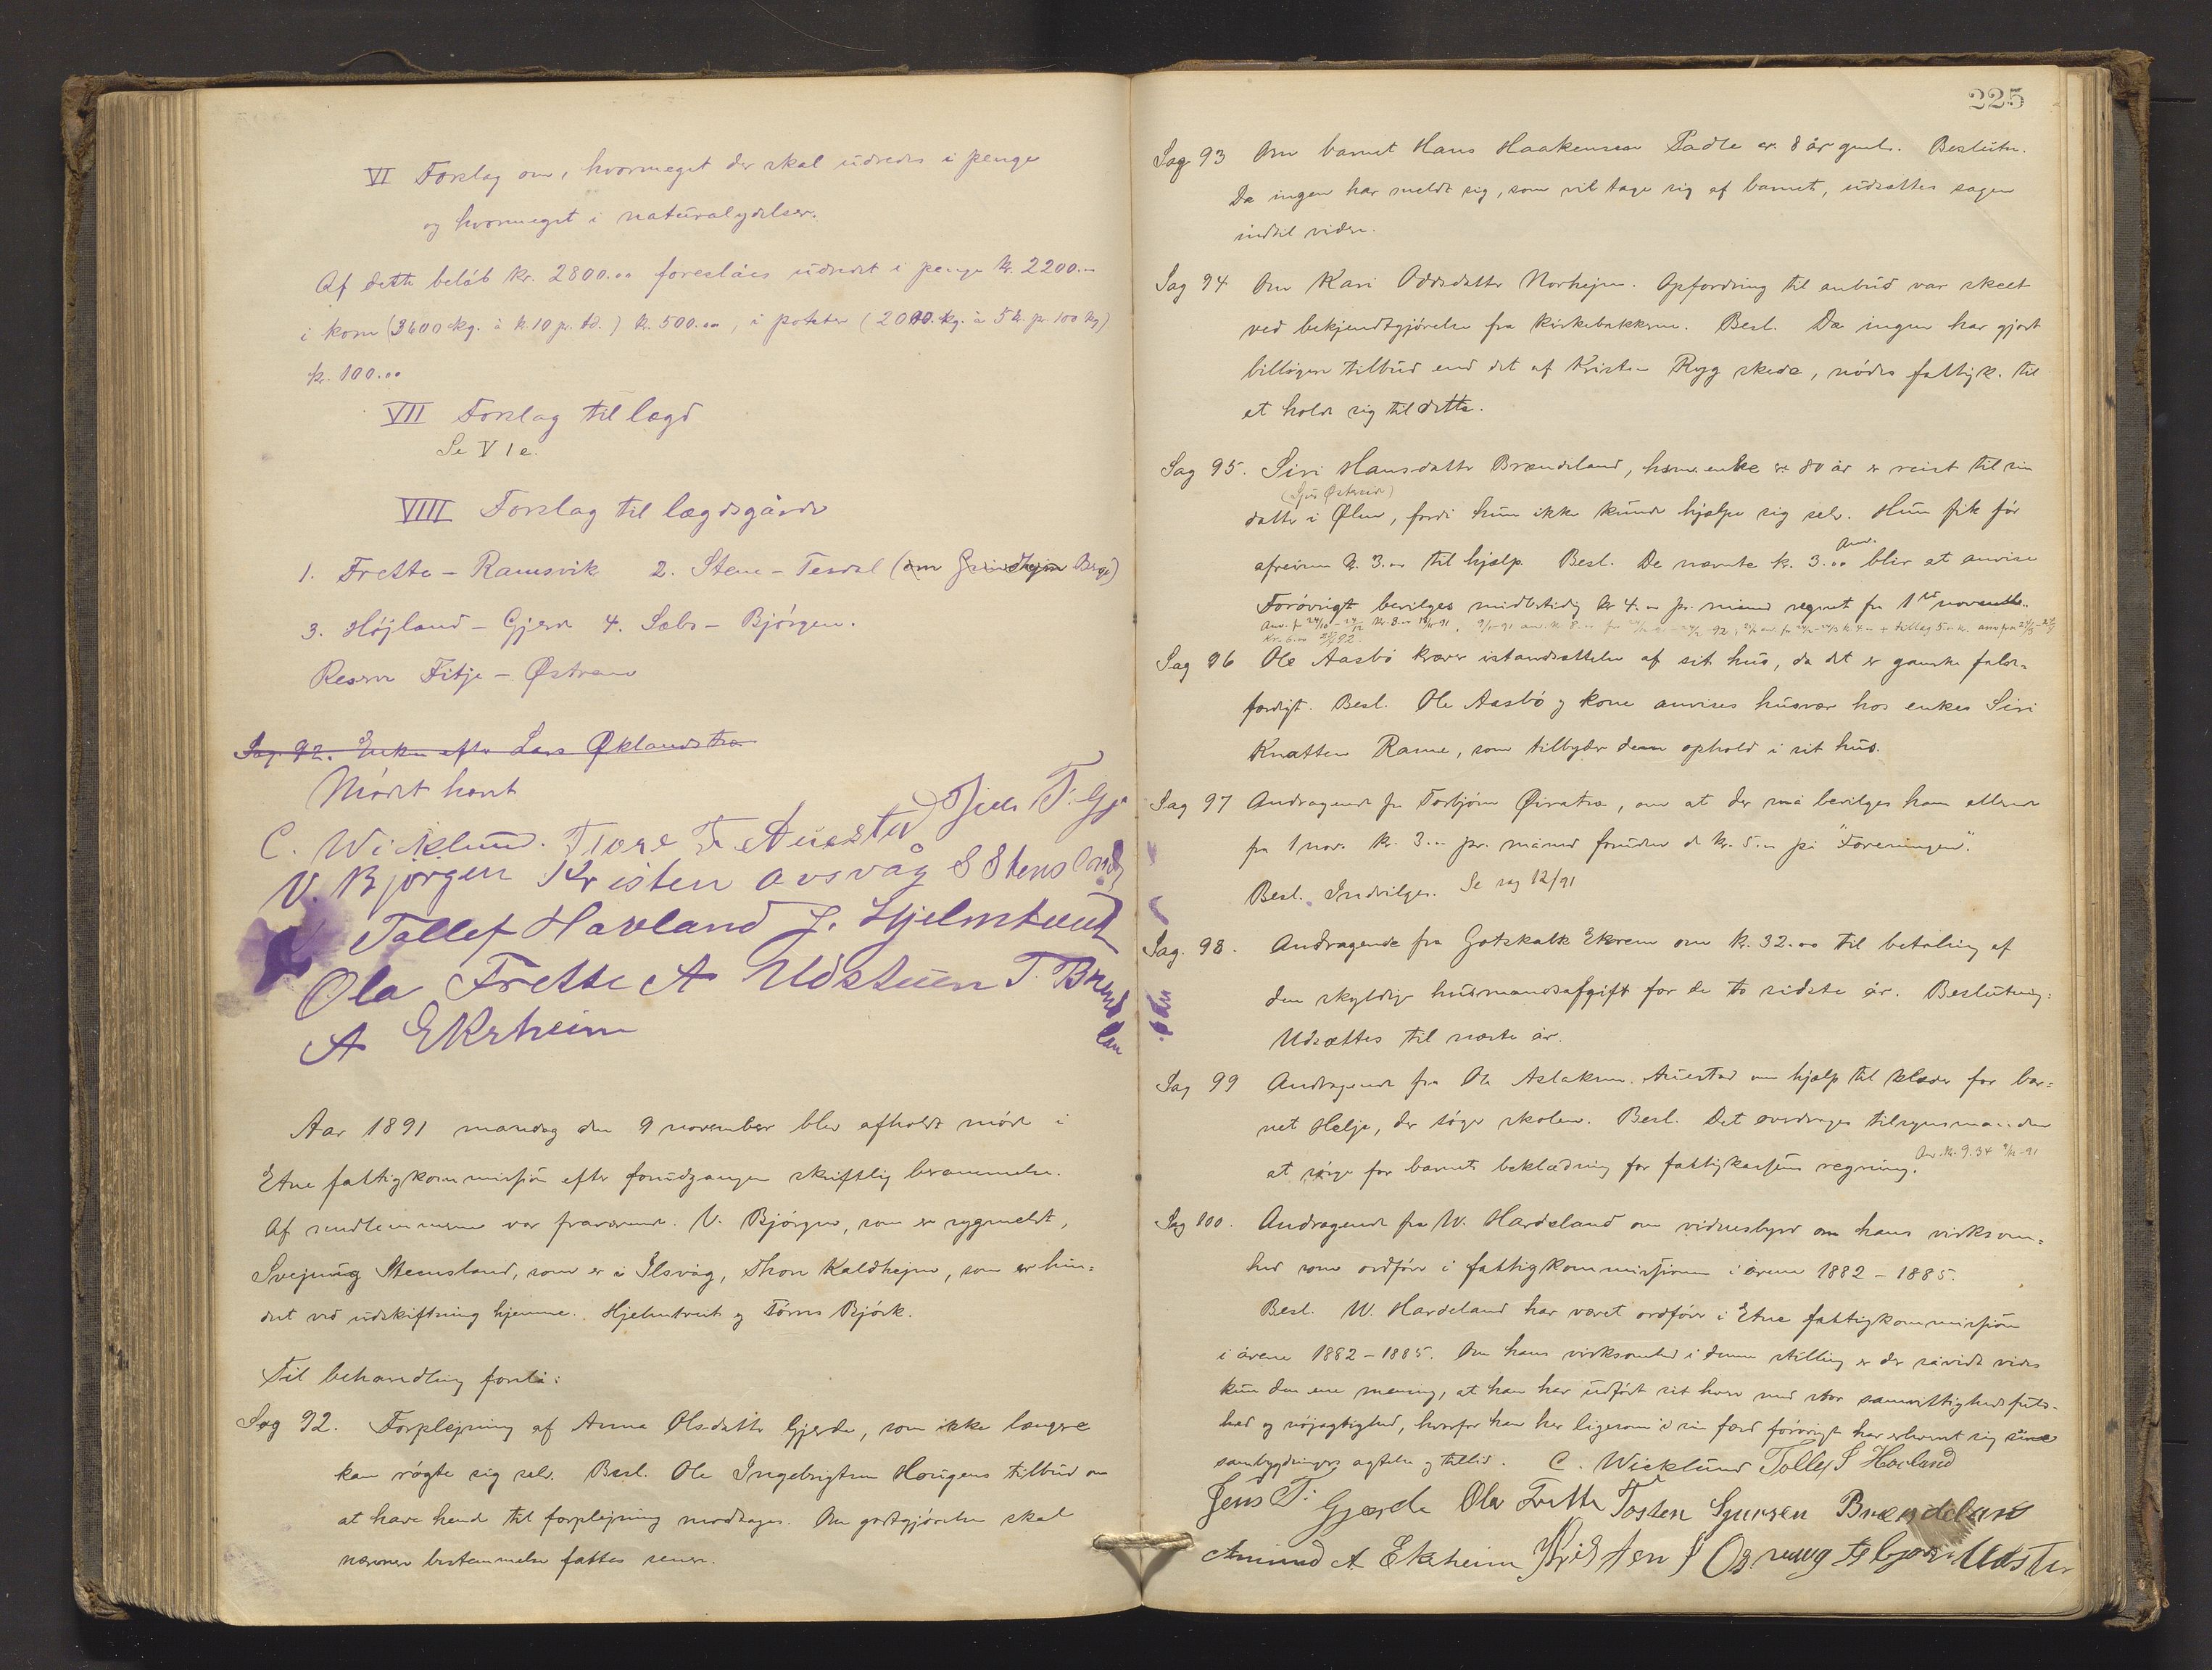 VI Forslag om, hvormeget der skal udredes i penge
og hvormeget i naturalydelser.
Af dette beløb kr. 2800.00 foreslåes udredet i penge kr. 2200.00
i korn (3600 kg. à kr. 10 pr. td.) kr. 500.00, i poteter (2000 kg. à 5 kr. pr. 100 kg)
kr. 100.00
VII Forslag til lægd
Se V 1 e.
VIII Forslag til lægdsgårde
1. Frette - Ramsvik 2. Stene - Tesdal (om Grindhejm Berge)
3. Højland - Gjerde 4. Sæbø - Bjørgen.
Reserve Fitje - Østrem
Sag. 92. Enken efter Lars Øklandstra
Mødet hævet
C. Wicklund. Tore T. Auestad Jens T. Gj
V. Bjørgen Kristen Osvåg S Stensland
Tollef Havland J. Hjelmtveit
Ola Frette A Udstuen T. Brendeland
A Ekrheim
Aar 1891 mandag den 9 november blev afholdt møde i
Etne fattigkommissjon efter forudgangen skriftlig berammelse.
Af medlemmerne var fraværende. V. Bjørgen, som er sygmeldt,
Svejnung Stensland, som er i Ølsvåg, Thore Kaldhejm, som er hin-
dret ved udskiftning hjemme. Hjelmtveit og Tørres Bjørk.
Til behandling forelå:
Sag 92. Forplejning af Anna Olsdatter Gjerde, som ikke længere
kan røgte sig selv. Besl. Ole Ingebrigtsen Haugens tilbud om
at have hende til forplejning modtages. Om godtgjørelsen skal
nærmere bestemmelse fattes senere.
225
Sag 93 Om barnet Hans Haakensen Tadle er 8 år gml. Beslutn.
Da ingen har meldt sig, som vil tage sig af barnet, udsættes sagen
indtil videre.
Sag 94 Om Kari Oddsdatter Norhejm. Opfordring til anbud var skeet
ved bekjendtgjørelse fra kirkebakkerne. Besl. Da ingen har gjort
billigere tilbud end det af Kristen Ryg skede, nødes fattigk. til
at holde sig til dette.
Sag 95. Siri Hansdatter Brændeland, husm. enke er 80 år er reist til sin
(Sjur Østereid)
datter i Ølen, fordi hun ikke kunde hjælpe sig selv. Hun fik før
anv.
afreisen kr. 3.00 til hjælp. Besl. De nævnte kr. 3.00 blir at anvise
Forøvrigt bevilges midlertidig kr 4.00 pr. måned regnet fra 1ste novembr.
Kr. 6.00
Sag 96 Ole Aasbø kræver istandsættelse af sit hus, da det er ganske falde-
færdigt. Besl. Ole Aasbø og kone anvises husvær hos enken Siri
Knatten Rame, som tilbyder dem ophold i sit hus.
Sag 97 Andragende fra Torbjørn Øvratræ, om at der må bevilges ham allerede
fra 1 nov. kr. 3.00 pr. måned foruden de kr. 5.00 på "Foreningen".
Besl. Indvilges. Se sag 12/91
Sag. 98. Andragende fra Gotskalk Ekrem om kr. 32.00 til betaling af
den skyldige husmandsafgift for de to sidste år. Beslutning:
Udsættes til næste år.
Sag 99 Andragende fra Ole Aslaksen Auestad om hjælp til klæder for bar-
net Helje, der søger skolen. Besl. Det overdrages tilsynsmanden
at sørge for barnets beklædning for fattigkassens regning. Anv. kr. 9.34 9/11-91
Sag 100. Andragende fra W. Hardeland om vidnesbyrd om hans virksom-
hed som ordfører i fattigkommissjonen i årene 1882 - 1885.
Besl. W. Hardeland har været ordfører i Etne fattigkommissjon
i årene 1882 - 1885. Om hans virksomhed i denne stilling er der såvidt vides
kun den ene mening, at han har udført sit hverv med stor samvittighedsfuld-
hed og nøjagtighed, hvorfor han her ligesom i sin færd forøvrigt har erhvervet sig sine
sambygdingers agtelse og tillid. C. Wicklund Tollef S Havland
Jens T. Gjærde Ola Frette Tosten Sjursen Brændeland
Amund A. Ekrheim Kristen J Osvaag Asbjørn Udstu